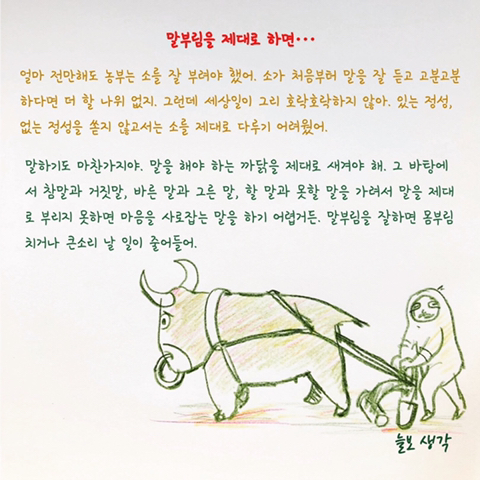 말부림을 제대로 하면...
얼마 전만해도 농부는 소를 잘 부려야 했어. 소가 처음부터 말을 잘 듣고 고분고분
하다면 더 할 나위 없지. 그런데 세상일이 그리 호락호락하지 않아. 있는 정성,
없는 정성을 쏟지 않고서는 소를 제대로 다루기 어려웠어.
말하기도 마찬가지야. 말을 해야 하는 까닭을 제대로 새겨야 해. 그 바탕에
서 참말과 거짓말, 바른 말과 그른 말, 할 말과 못할 말을 가려서 말을 제대
로 부리지 못하면 마음을 사로잡는 말을 하기 어렵거든. 말부림을 잘하면 몸부림
치거나 큰소리 날 일이 줄어들어.
늘보 생각